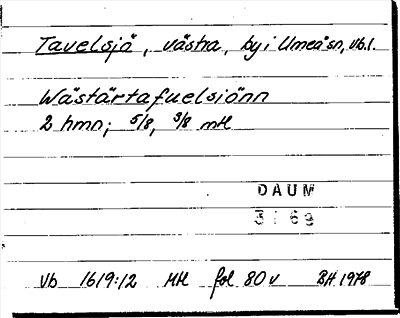 Tavelsjö, västra, by i Umeå sn, Vb.l.
Wästärtafuelsiönn
2 hmn; 5/8, 3/8 mtl
DAUM
3169
Vb 1619:12 Mtl fol 80 v BH 1978